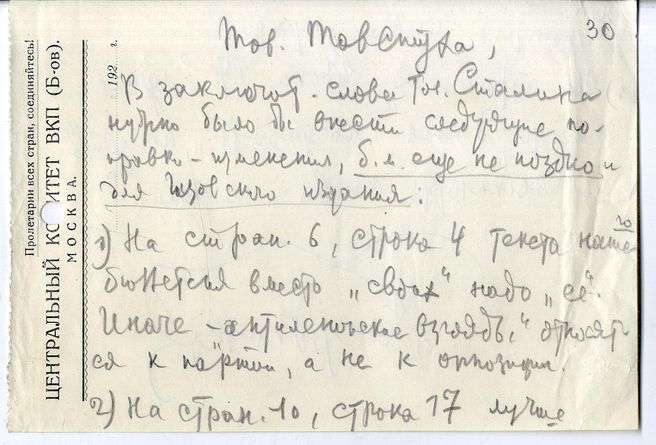 Пролетарии всех стран, соединяйтесь!
ЦЕНТРАЛЬНЫЙ КОМИТЕТ ВКП (Б-ов).
МОСКВА.
192 г.
30
Тов. Товстуха,
В заключит. слово Тов. Сталина
нужно было бы внести следующие по-
правки - изменения, б.м. еще не поздно и
для Гизовского издания:
1) На стран. 6, строка 4 текста нашего
бюллетеня вместо „своих" надо „её".
Иначе - антиленинские взгляды" относят-
ся к партии, а не к оппозиции.
2) На стран. 10, строка 17 лучше